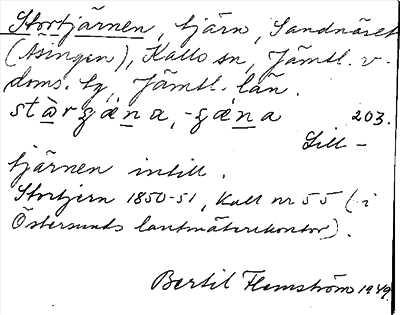 Stortjärnen, tjärn, Sandnäset
(Åsingen), Kalls sn, Jämtl. v.
doms. tg, Jämtl. län.
stòrgæ̀na, -gæ̀na 203.
Lill-
tjärnen intill.
Stortjern 1850-51, Kall nr 55 (i
Östersunds lantmäterikontor).
Bertil Flemström 1949.